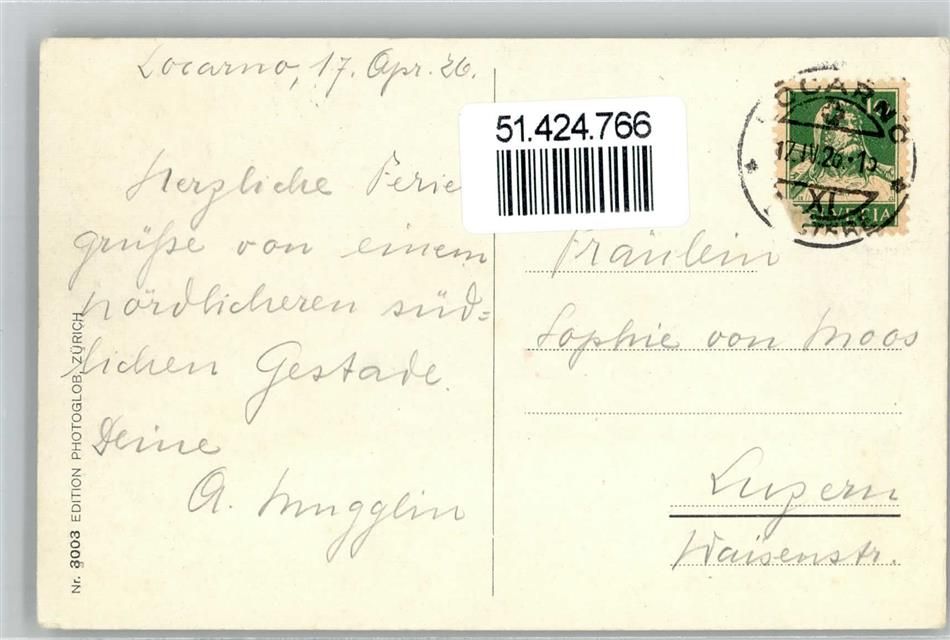 Locarno, 17. Apr. 26.
51.424.766
Herzliche Ferie
grüße von einem
nördlicheren süd=
lichen Gestade.
Deine
A. Mugglin
Nr. 3003 EDITION PHOTOGLOB, ZÜRICH
LOCARNO
17.IV.26
XI
10
HELVETIA
Fräulein
Sophie von Moos
Luzern
Waisenstr.